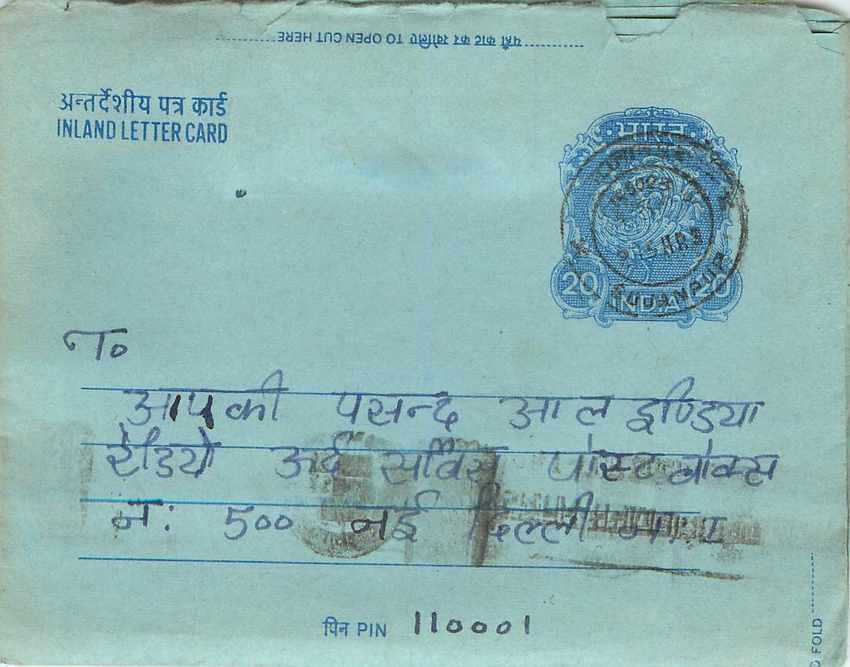 यहाँ काट कर खोलिए TO OPEN CUT HERE
अन्तर्देशीय पत्र कार्ड
INLAND LETTER CARD
भारत
20 INDIA 20
SUJANPUR
To
आपकी पसन्द आल इण्डिया
रेडियो उर्दू सर्विस पोस्ट बोक्स
नं: 500 नई दिल्ली
पिन PIN 110001
FOLD